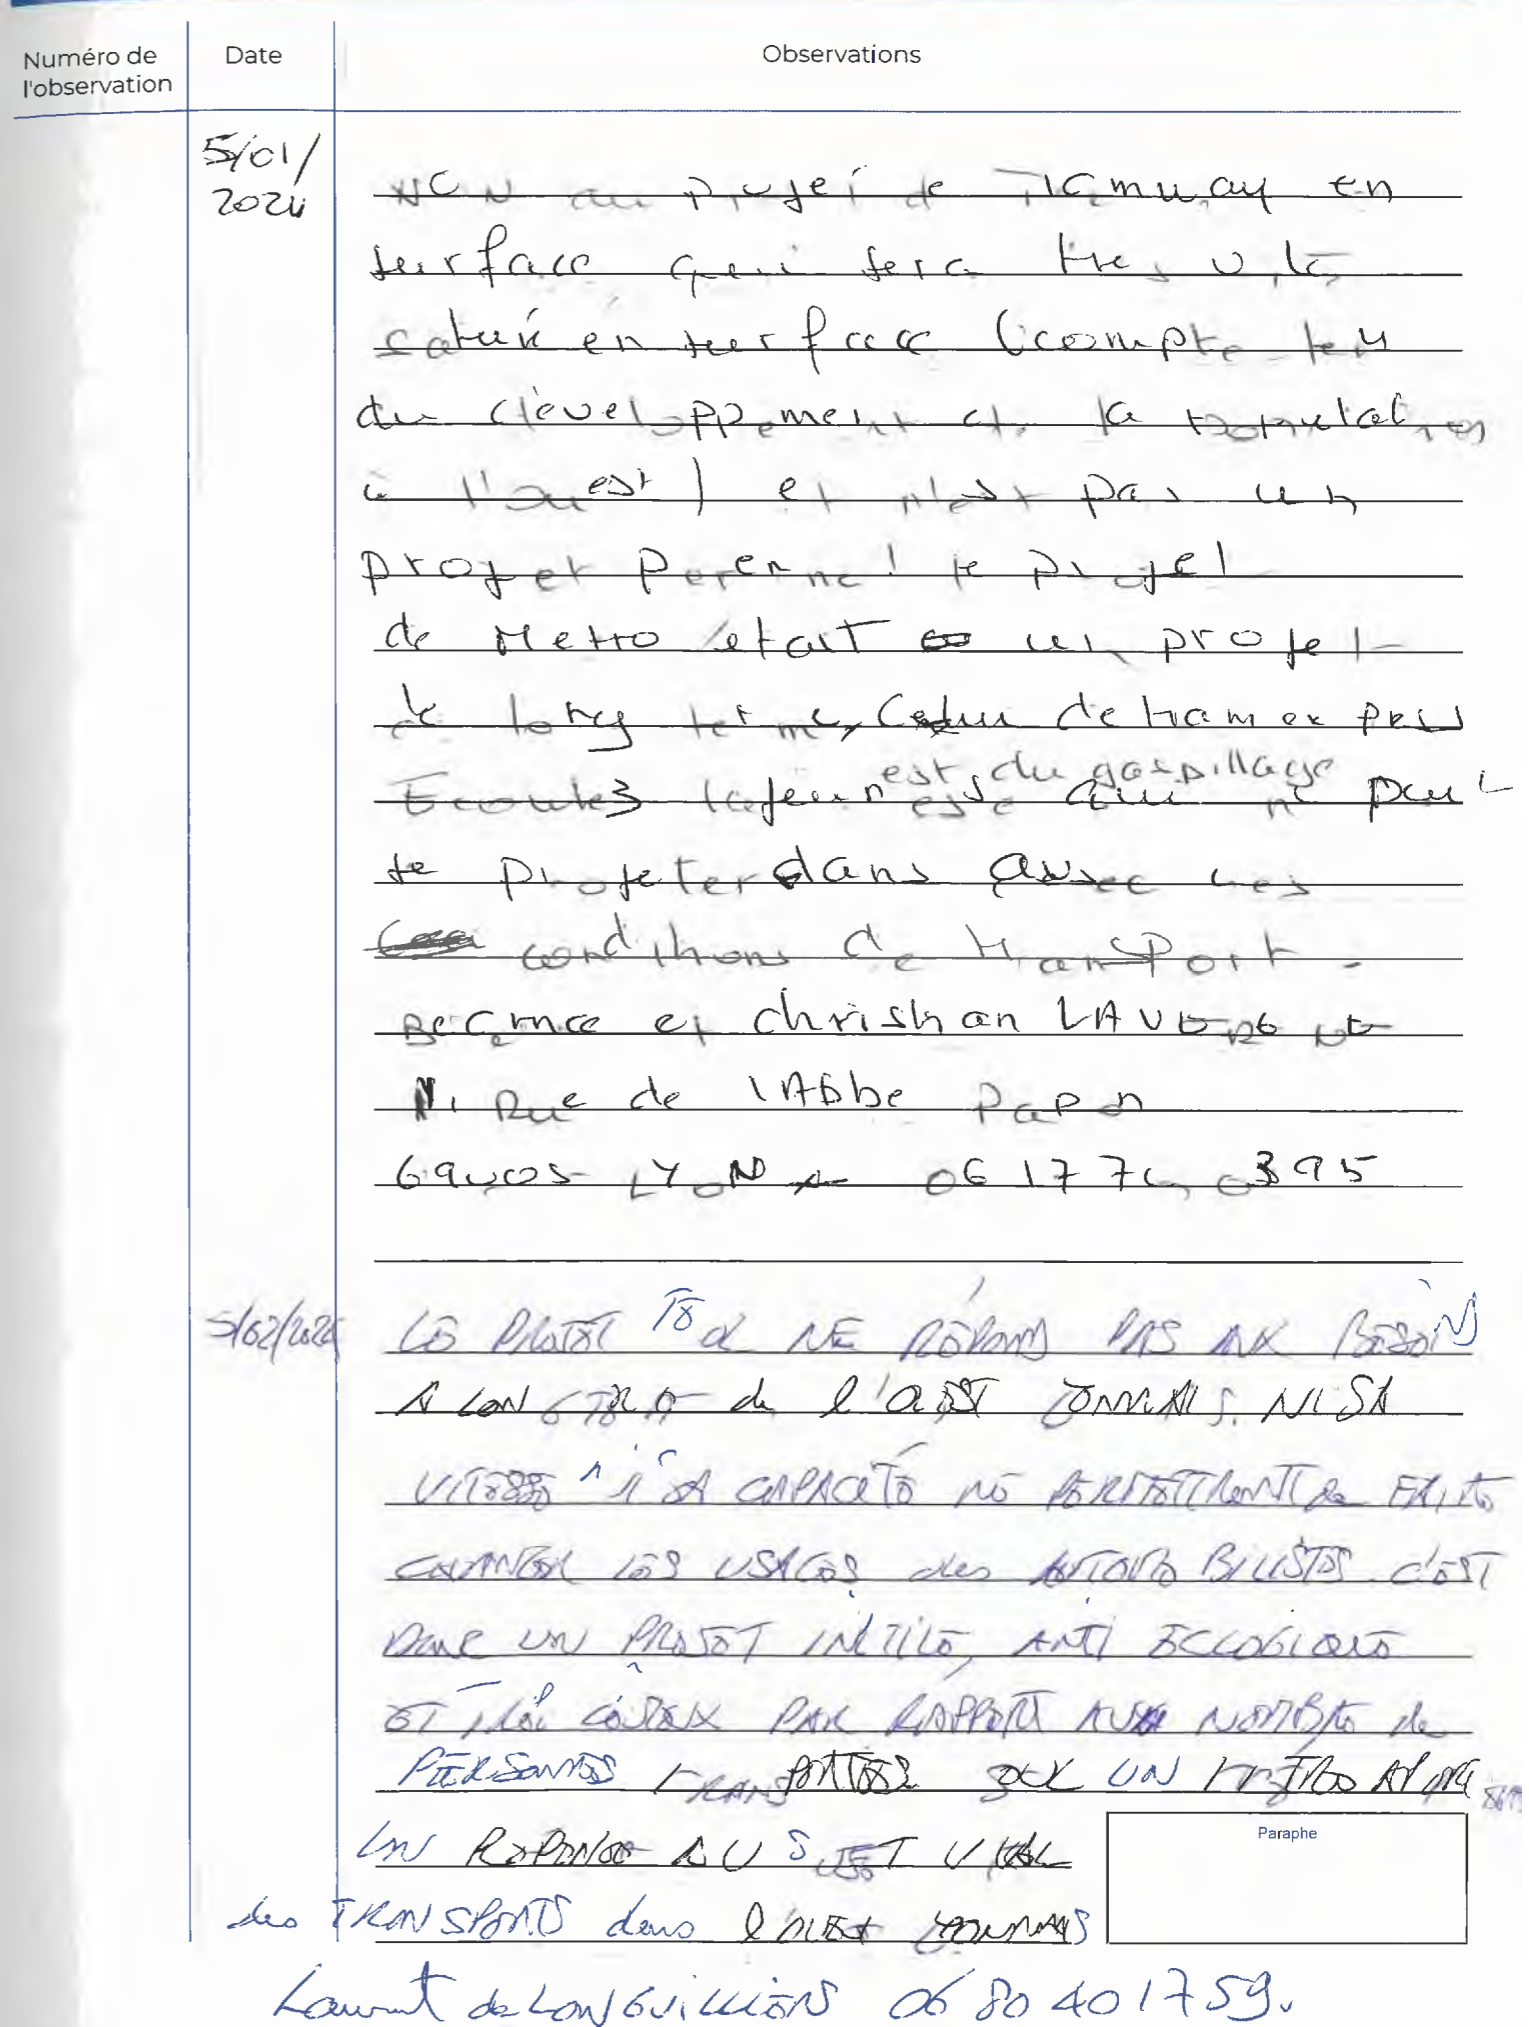 Numéro de l'observation
Date
Observations
5/01/2024
NON au projet de Tramway en
surface qui sera très vite
saturé en surface (compte tenu
du développement de la population
à l'ouest) et n'est pas un
projet perenne! le projet
de Metro était un projet
de long terme, Celui de tram express
est du gaspillage
Ecoutez qui ne peut
se projeter dans avec ces
conditions de transport -
et Christian LAVERGNE
rue de l'Abbe Papon
LYON
5/02/2024
LE PROJET TEOL NE REPOND PAS AUX BESOINS
A LONG TERME de l'OUEST LYONNAIS. NI SA
VITESSE NI SA CAPACITÉ NE PERMETTRONT de FAIRE
CHANGER LES USAGES des AUTOMOBILISTES. C'EST
DONC UN PROJET INUTILE, ANTI ECOLOGIQUE
ET TRÈS COÛTEUX PAR RAPPORT AUX NOMBRE de
PERSONNES TRANSPORTÉES UN METRO
UN REPONSE AU SUJET VITAL
des TRANSPORTS dans l'OUEST LYONNAIS
Paraphe
Laurent de LONGUILLIERS 06 80 40 17 59.